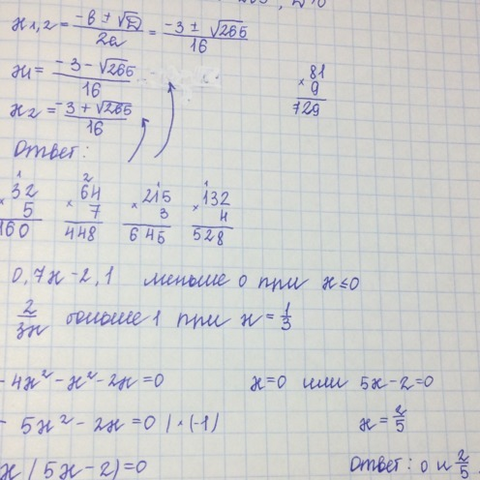 x1,2 = (-b ± √D)/2a = (-3 ± √265)/16
x1 = (-3 - √265)/16
x2 = (-3 + √265)/16
81
× 9
729
Ответ:
32
× 5
160
64
× 7
448
215
× 3
645
132
× 4
528
0,7x - 2,1 меньше 0 при x ≤ 0
2/3x больше 1 при x = 1/3
- 4x² - x² - 2x = 0
- 5x² - 2x = 0 | · (-1)
x (5x - 2) = 0
x = 0 или 5x - 2 = 0
x = 2/5
Ответ: 0 и 2/5.